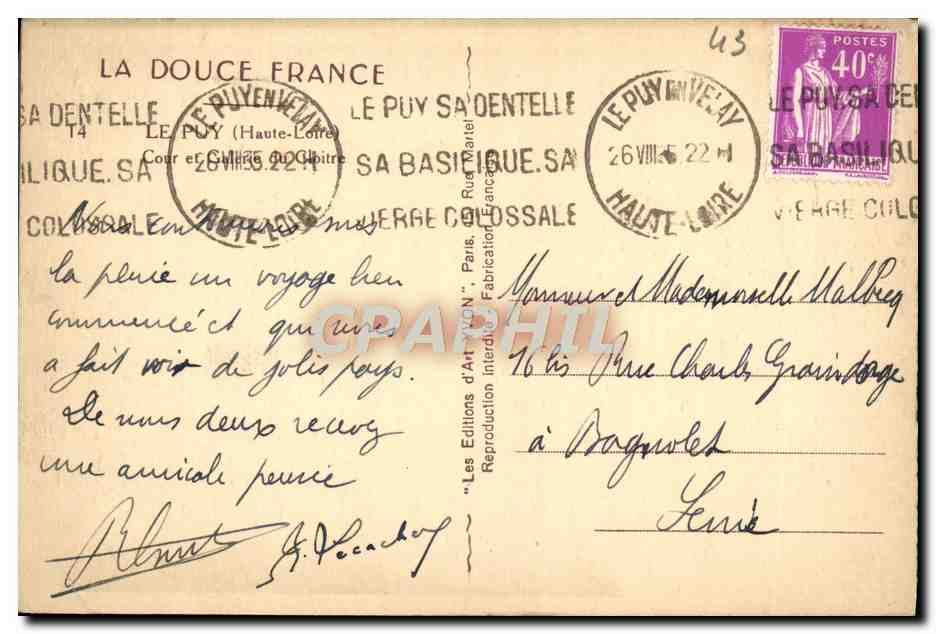 43
LA DOUCE FRANCE
T4
LE PUY (Haute-Loire)
Cour et Galerie du Cloître
LE PUY EN VELAY
26 VIII 35. 22-1
HAUTE-LOIRE
LE PUY. SA DENTELLE
SA BASILIQUE. SA
VIERGE COLOSSALE
LE PUY EN VELAY
26 VIII 35. 22-1
HAUTE-LOIRE
POSTES
40c
LE PUY. SA DEN
SA BASILIQU
VIERGE COLO
SA DENTELLE
ILIQUE. SA
COLOSSALE
Nous continuons sous
la pluie un voyage bien
commencé et qui nous
a fait voir de jolis pays.
De nous deux recevez
une amicale pensée
"Les Editions d'Art YVON", Paris, Rue Martel
Reproduction Interdite Fabrication Française
Monsieur et Mademoiselle Malbecq
16 bis Rue Charles Graindorge
à Bagnolet
Seine
CPAPHIL